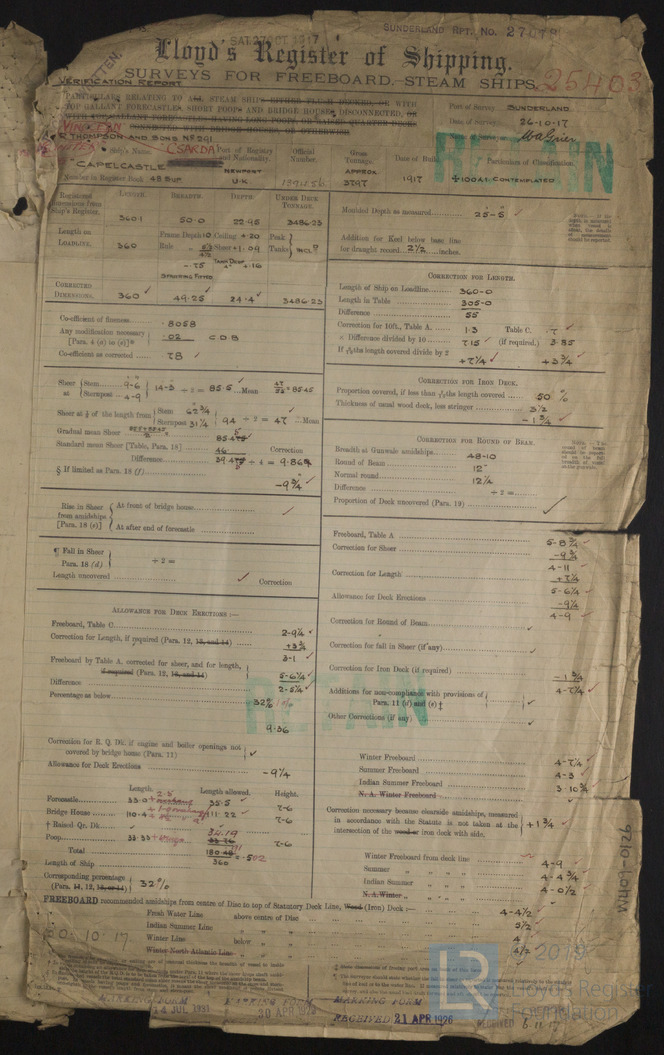 SAT. 27 OCT 1917
SUNDERLAND RPT. No. 27079
Lloyd's Register of Shipping.
SURVEYS FOR FREEBOARD.—STEAM SHIPS.
25403
VERIFICATION REPORT
PARTICULARS RELATING TO ALL STEAM SHIPS EITHER FLUSH DECKED, OR WITH
TOP GALLANT FORECASTLES, SHORT POOPS AND BRIDGE HOUSES DISCONNECTED, OR
Port of Survey SUNDERLAND
Date of Survey 26-10-17
R THOMPSON AND SONS No 291
Ship's Name CSARDA
CAPELCASTLE
Port of Registry and Nationality.
NEWPORT
U.K.
Official Number.
Gross Tonnage.
APPROX
3797
Date of Build
1917
Particulars of Classification.
+100A1. CONTEMPLATED
RETAIN
Number in Register Book 48 SUP
Registered Dimensions from Ship's Register.
LENGTH. BREADTH. DEPTH. UNDER DECK TONNAGE.
360.1 50.0 22.95 3486.23
Length on LOADLINE. 360
Frame Depth 10 Ceiling + .20
Sheer + 1.09
Peak Tanks
- .75 + .16
SPARRING FITTED
CORRECTED DIMENSIONS. 360 49.25 24.4 3486.23
Moulded Depth as measured 25-5
Addition for Keel below base line
for draught record 2 1/2 inches.
Co-efficient of fineness .8058
Any modification necessary .02 CDB
[Para. 4 (a) to (e)]*
Co-efficient as corrected .78
CORRECTION FOR LENGTH.
Length of Ship on Loadline 360-0
Length in Table 305-0
Difference 55
Correction for 10ft., Table A. 1.3 Table C. .7
× Difference divided by 10 7.15 (if required.) 3.85
If 6/10ths length covered divide by 2 +7 1/4 +3 3/4
Sheer at Stem 9-6
Sternpost 4-9
14-3 ÷ 2 = 85.5 Mean
Sheer at 1/8 of the length from Stem 62 3/4
Sternpost 31 1/4
94 ÷ 2 = 47 Mean
Gradual mean Sheer
Standard mean Sheer [Table, Para. 18] 46 Correction
Difference ÷ 4 = 9.869
§ If limited as Para. 18 (f) -9 3/4
CORRECTION FOR IRON DECK.
Proportion covered, if less than 7/10ths length covered 50 %
Thickness of usual wood deck, less stringer 3 1/2
- 1 3/4
CORRECTION FOR ROUND OF BEAM.
Breadth at Gunwale amidships 48-10
Round of Beam 12"
Normal round 12 1/4
Difference ÷ 2 =
Proportion of Deck uncovered (Para. 19)
Rise in Sheer from amidships [Para. 18 (e)]
At front of bridge house
At after end of forecastle
¶ Fall in Sheer Para. 18 (d) ÷ 2 =
Length uncovered Correction
Freeboard, Table A 5-8 3/4
Correction for Sheer -9 3/4
4-11
Correction for Length +7 1/4
5-6 1/4
Allowance for Deck Erections -9 1/4
4-9
Correction for Round of Beam
Correction for fall in Sheer (if any)
Correction for Iron Deck (if required) - 1 3/4
4-7 1/4
Additions for non-compliance with provisions of
Para. 11 (d) and (e) ‡
Other Corrections (if any)
ALLOWANCE FOR DECK ERECTIONS:—
Freeboard, Table C 2-9 1/4
Correction for Length, if required (Para. 12, 13, and 14) +3 3/4
3-1
Freeboard by Table A. corrected for sheer, and for length, if required (Para. 12, 13, and 14) 5-6 1/4
Difference 2-5 1/4
Percentage as below 32%
9.36
RETAIN
Correction for R. Q. Dk. if engine and boiler openings not
covered by bridge house (Para. 11)
Allowance for Deck Erections -9 1/4
Length. Length allowed. Height.
Forecastle 33.0 35.5 7-6
Bridge House 110.4 111.22 7-6
† Raised Qr. Dk.
Poop 33.33 34.19 7-6
Total
Length of Ship 360 = .502
Corresponding percentage
(Para. 11, 12, 13, or 14) 32%
Winter Freeboard 4-7 1/4
Summer Freeboard 4-3
Indian Summer Freeboard 3-10 3/4
N. A. Winter Freeboard
Correction necessary because clearside amidships, measured
in accordance with the Statute is not taken at the
intersection of the wood or iron deck with side. +1 3/4
Winter Freeboard from deck line 4-9
Summer " " " " 4-4 3/4
Indian Summer " " " " 4-0 1/2
N. A. Winter " " " "
FREEBOARD recommended amidships from centre of Disc to top of Statutory Deck Line, Wood (Iron) Deck:— 4-4 1/2
Fresh Water Line above centre of Disc 5 1/2
Indian Summer Line " " 4
Winter Line below " 4 1/2
Winter North Atlantic Line " "
30.10.17
MARKING FORM
14 JUL 1931
MARKING FORM
MARKING FORM
RECEIVED 21 APR 1926
RECEIVED 6.11.17
W401-0126
LR
© 2019
Lloyd's Register
Foundation